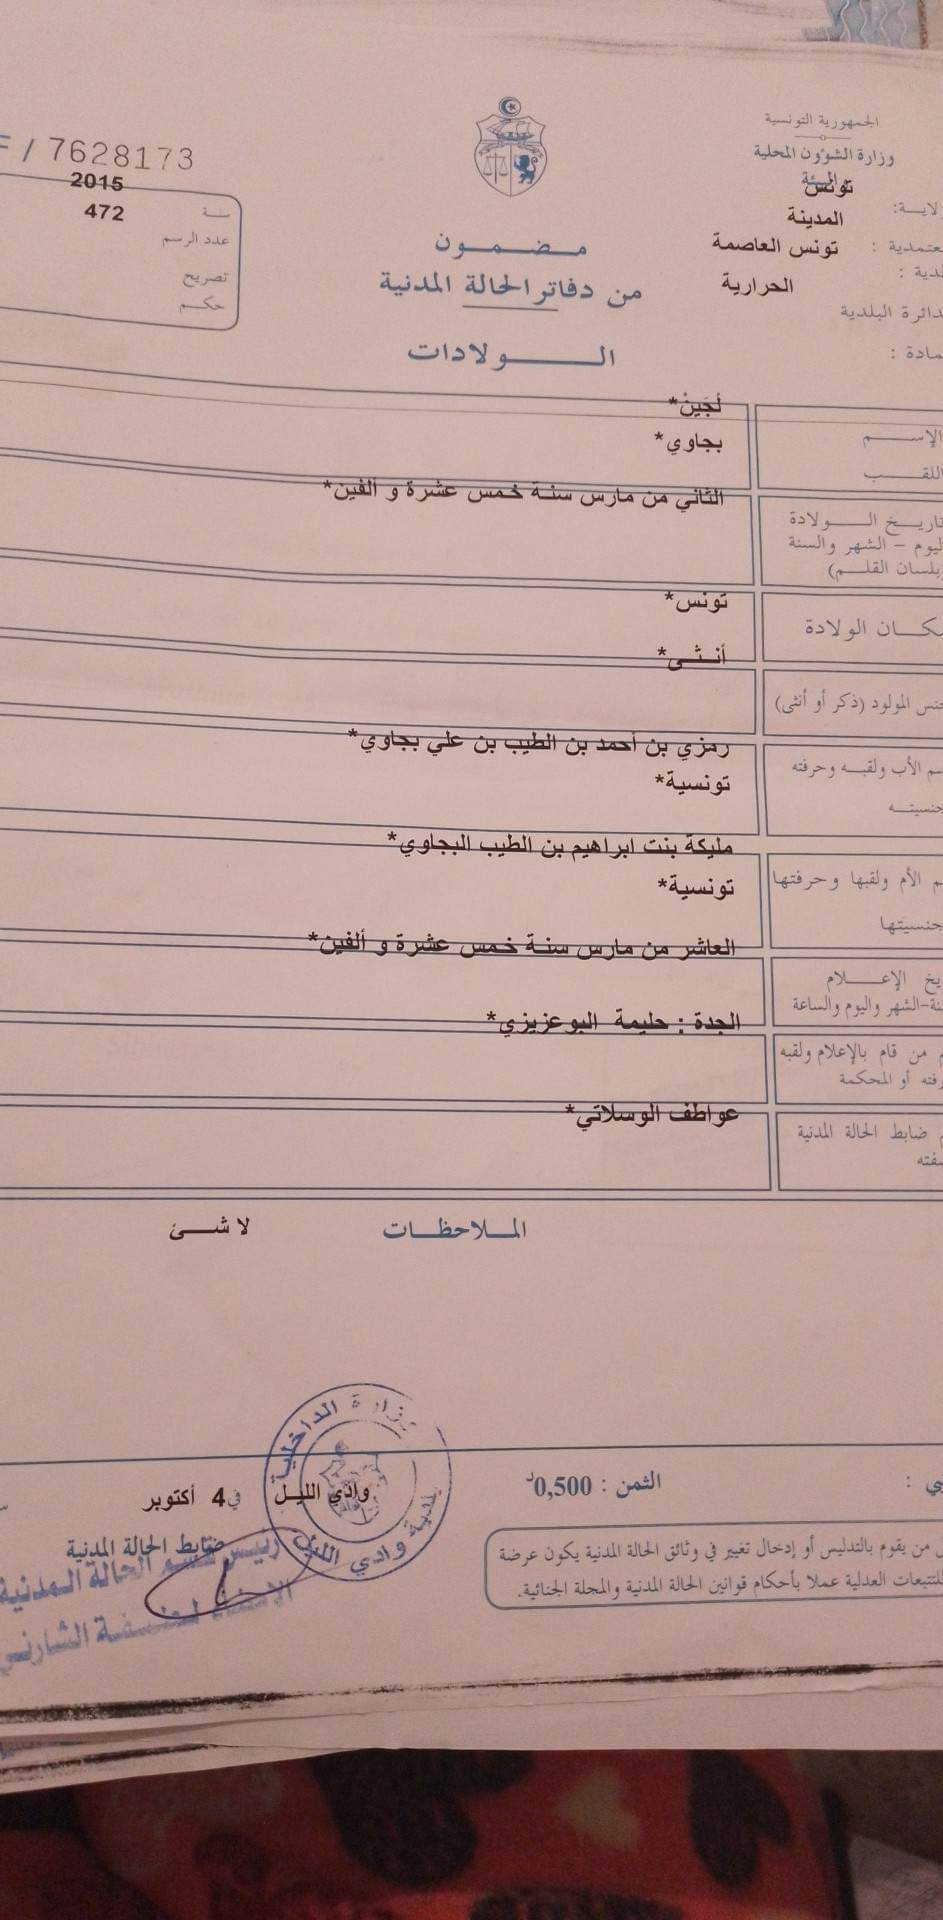 الجمهورية التونسية
وزارة الشؤون المحلية
تونس
المدينة
معتمدية : تونس العاصمة
الحرارية
دائرة البلدية
F / 7628173
سنة 2015
عدد الرسم 472
تصريح
حكم
مضمون
من دفاتر الحالة المدنية
الولادات
الإسم لُجَيْنْ*
اللقب بجاوي*
تاريخ الولادة الثاني من مارس سنة خمس عشرة و ألفين*
اليوم - الشهر والسنة
بلسان القلم)
مكان الولادة تونس*
جنس المولود (ذكر أو أنثى) أنثى*
الأب ولقبه وحرفته رمزي بن أحمد بن الطيب بن علي بجاوي*
جنسيته تونسية*
الأم ولقبها وحرفتها مليكة بنت ابراهيم بن الطيب البجاوي*
جنسيتها تونسية*
الإعلام العاشر من مارس سنة خمس عشرة و ألفين*
الشهر واليوم والساعة
من قام بالإعلام ولقبه الجدة : حليمة البوعزيزي*
أو المحكمة
ضابط الحالة المدنية عواطف الوسلاتي*
الملاحظات لا شئ
وزارة الداخلية
بلدية وادي الليل
الثمن : 0,500د
وادي الليل في 4 أكتوبر
ضابط الحالة المدنية
رئيس قسم الحالة المدنية
من يقوم بالتدليس أو إدخال تغيير في وثائق الحالة المدنية يكون عرضة
للتتبعات العدلية عملا بأحكام قوانين الحالة المدنية والمجلة الجنائية.